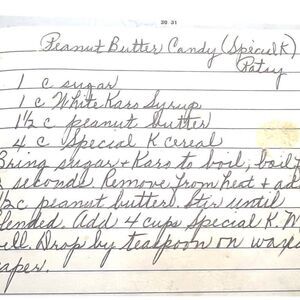 30 31
Peanut Butter Candy (Special K)
Patsy
1 c sugar
1 c White Karo Syrup
1½ c peanut butter
4 c Special K cereal
Bring sugar + Karo to boil, boil
seconds Remove from heat + ad
½c peanut butter. Stir until
lended. Add 4 cups Special K. M
ell. Drop by teaspoon on waxe
aper.